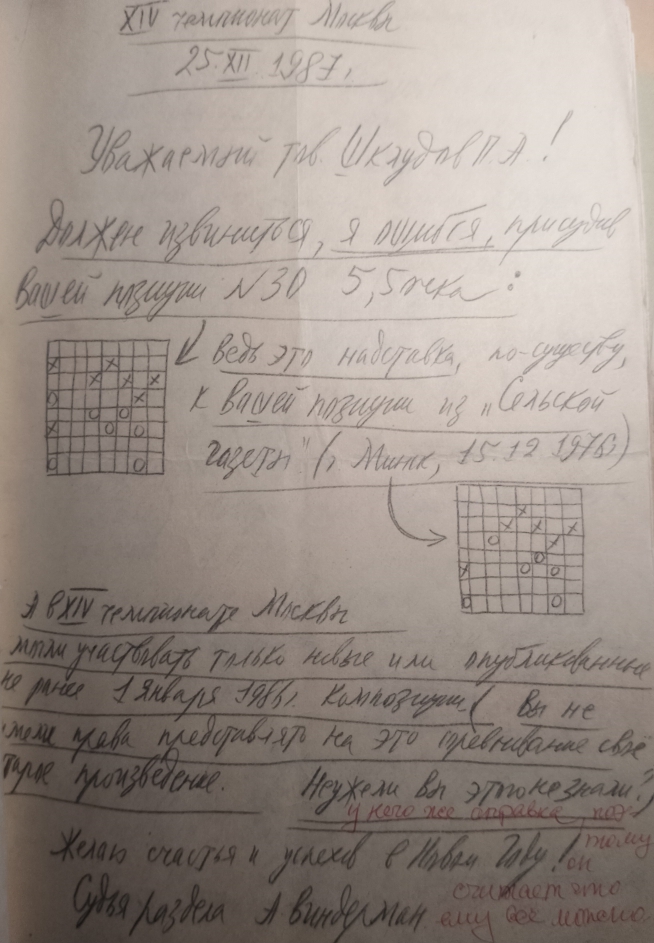 XIV чемпионат Москвы
25.XII 1987г.
Уважаемый тов. Шклудов П.А.!
Должен извиниться, я ошибся, присудив
Вашей позиции №30 5,5 очка:
ведь это надставка, по-существу,
к Вашей позиции из "Сельской
газеты" (г. Минск, 15.12 1976)
А в XIV чемпионате Москвы
могли участвовать только новые или опубликованные
не ранее 1 Января 198 г. композиции (Вы не
имели права представлять на это соревнование своё
старое произведение. Неужели Вы этого не знали?)
у него же справка, поэ-
Желаю счастья и успехов в Новом Году! тому
он
Судья раздела А Виндерман считает что
ему всё можно.